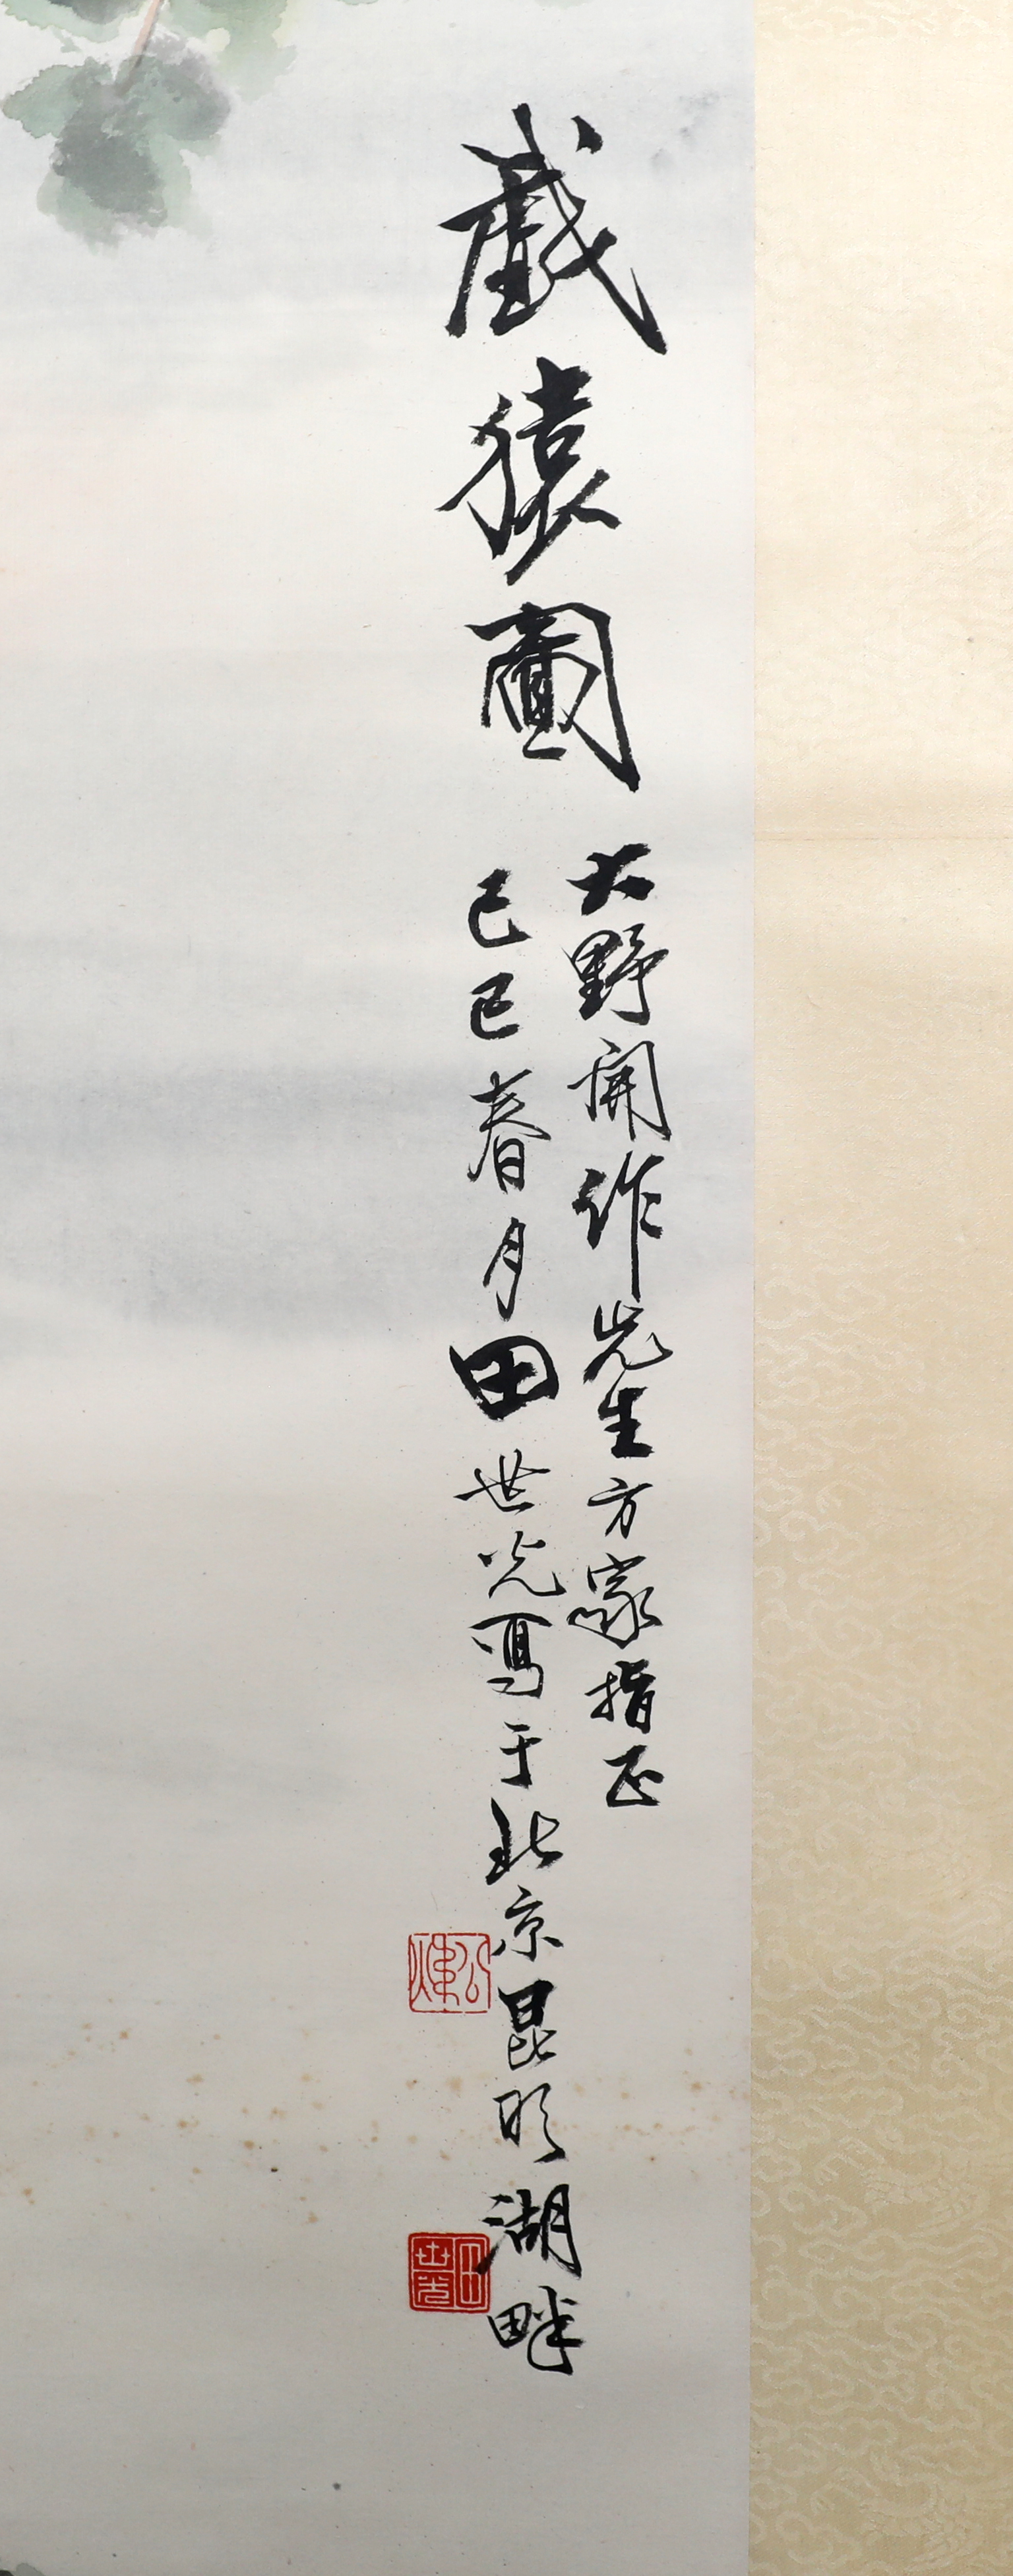 戲猿圖
大野開作先生方家指正
己巳春月田世光寫于北京昆明湖畔
公煒
田世光